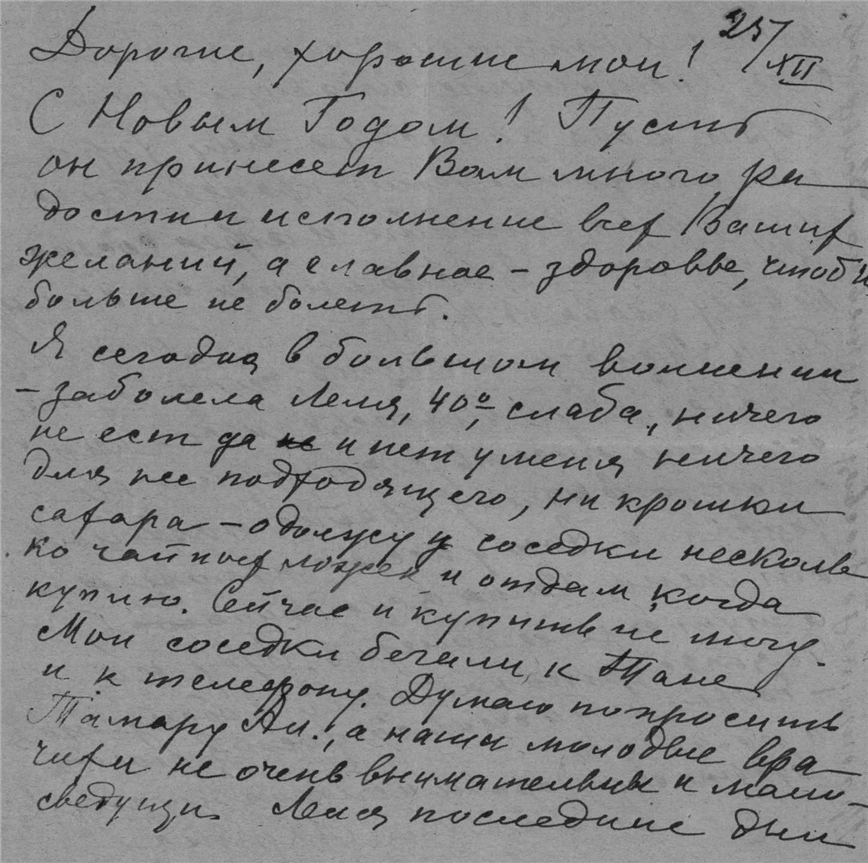 25/XII
Дорогие, хорошие мои!
С Новым Годом! Пусть
он принесет Вам много ра
дости и исполнение всех Ваших
желаний, а главное – здоровье, чтобы
больше не болеть.
Я сегодня в большом волнении
– заболела Леля, 40°, слаба, ничего
не ест да и нет у меня ничего
для нее подходящего, ни крошки
сахара – одолжу у соседки несколь
ко чайных ложек и отдам, когда
куплю. Сейчас и купить не могу.
Мои соседки бегали к Тане
и к телефону. Думаю попросить
Тамару Ал., а наши молодые вра
чихи не очень внимательны и мало-
сведущи. Леля последние дни